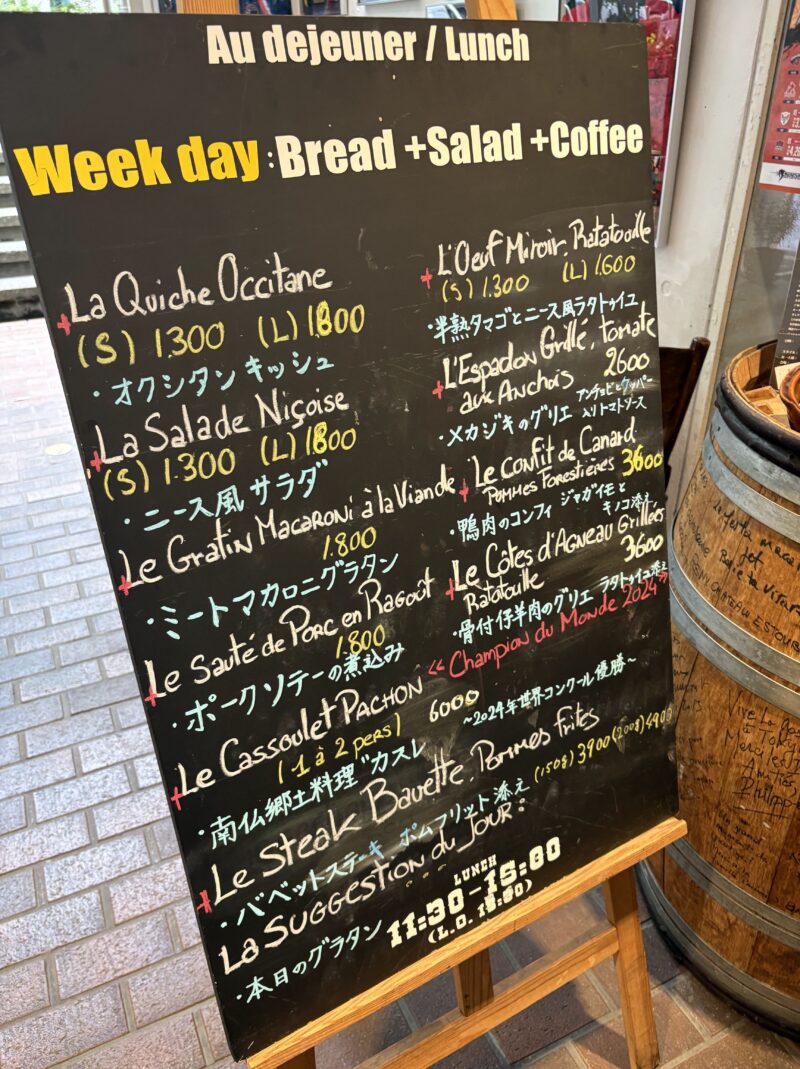 Au dejeuner / Lunch
Week day : Bread +Salad +Coffee
La Quiche Occitane
(S) 1.300 (L) 1.800
・オクシタン キッシュ
La Salade Niçoise
(S) 1.300 (L) 1.800
・ニース風 サラダ
Le Gratin Macaroni à la Viande
1.800
・ミートマカロニグラタン
Le Sauté de Porc en Ragoût
1.800
・ポークソテーの煮込み
Le Cassoulet Pachon
(1 à 2 pers) 6000
・南仏郷土料理"カスレ
L'Oeuf Miroir, Ratatouille
(S) 1.300 (L) 1.600
・半熟タマゴとニース風ラタトゥイユ
L'Espadon Grillé, tomate
aux Anchois 2600
・メカジキのグリエ アンチョビとケッパー
入りトマトソース
Le Confit de Canard
Pommes Forestières 3600
・鴨肉のコンフィ ジャガイモと
キノコ添え
Le Côtes d'Agneau Grillées
Ratatouille 3600
・骨付仔羊肉のグリエ ラタトゥイユ添え
<< Champion du Monde 2024 >>
~2024年世界コンクール優勝~
Le Steak Bavette, Pommes frites
(150g) 3900 (200g) 4900
・バベットステーキ ポムフリット添え
La Suggestion du Jour:
・本日のグラタン
LUNCH
11:30-15:00